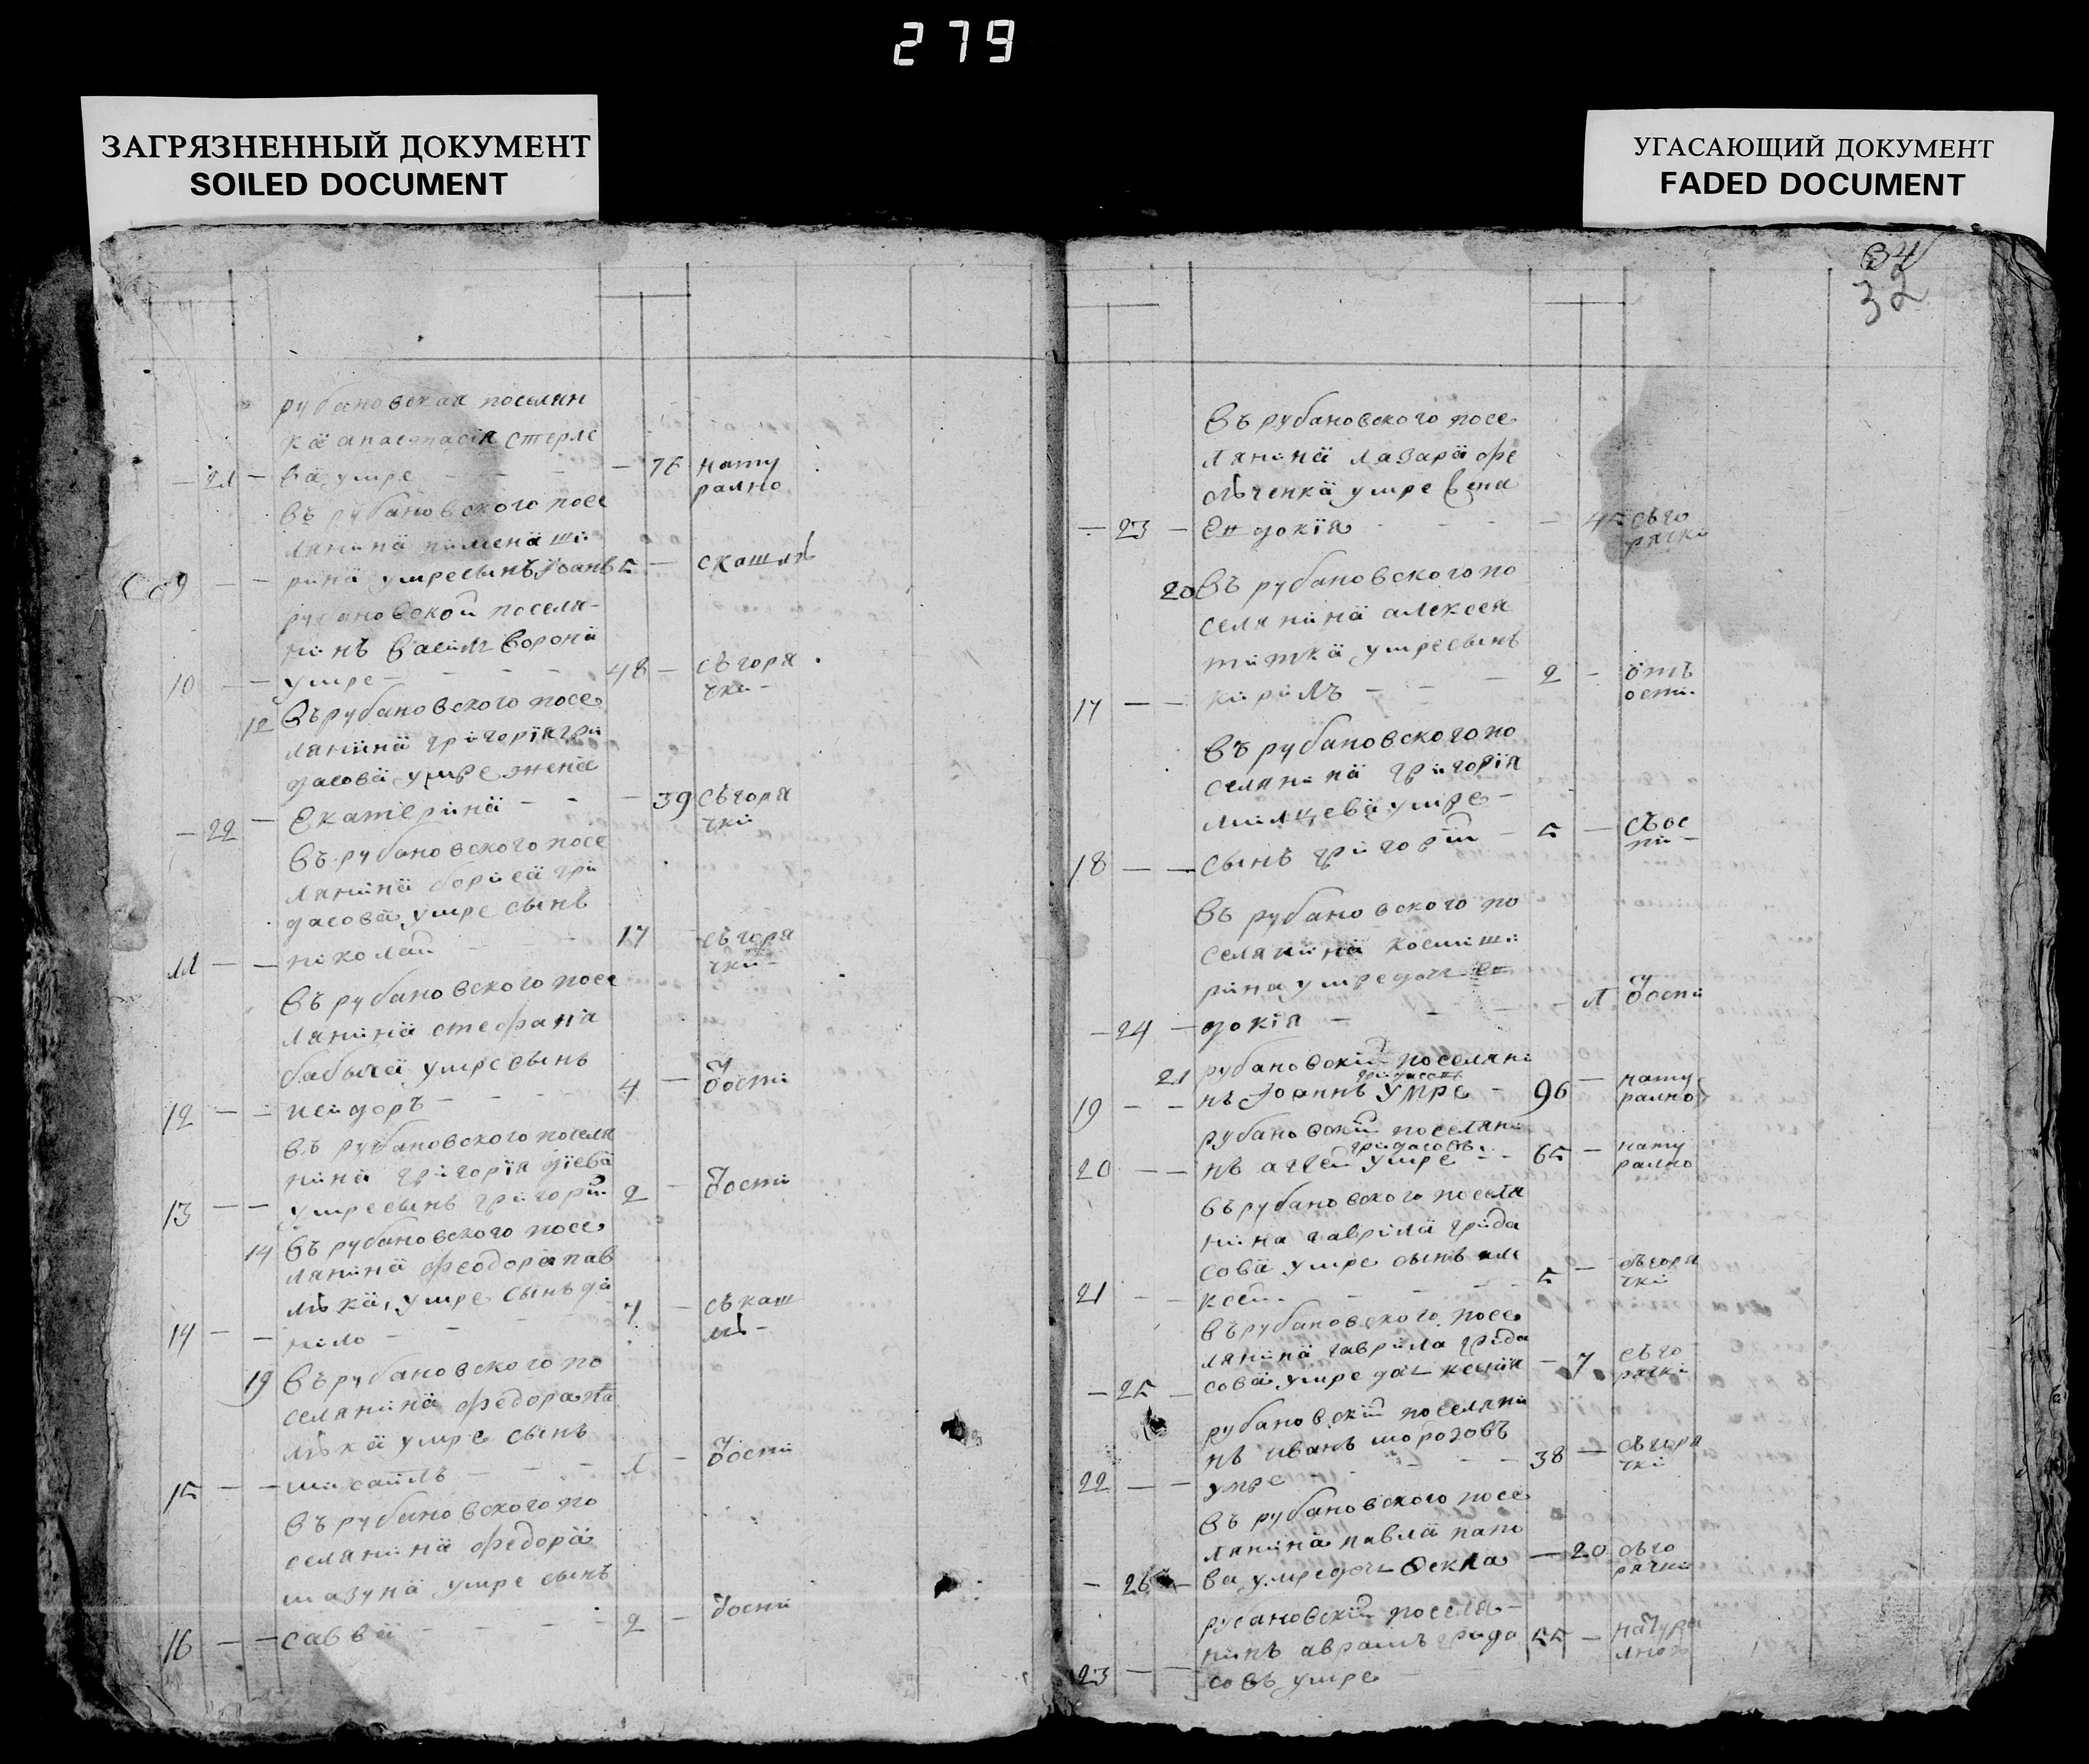 279
ЗАГРЯЗНЕННЫЙ ДОКУМЕНТ
SOILED DOCUMENT
УГАСАЮЩИЙ ДОКУМЕНТ
FADED DOCUMENT
рубановская поселян
ка анастасія стерле
— 21 — ва, умре — — — — 76 нату
рално
въ рубановского посе
лянина
9 — — рина умре сынъ Іоанъ 5 — скашля
рубановской поселя-
нинъ васил ворона
10 — — умре — — — 48 — съ горя
чки —
12 въ рубановского посе
лянина григорія гри
дасова умре жена
— 22 — Екатерина — — — 39 съ горя
чки
въ рубановского посе
лянина бориса гри
дасова, умре сынъ
11 — — николай — 17 — съ горя
чки —
въ рубановского посе
лянина стефана
бабича умре сынъ
12 — — исидоръ — — — 4 — ѿ оспи
въ рубановского поселя
нина григорія діева
13 — — умре сынъ григорій 2 — ѿ оспи
14 въ рубановского посе
лянина феодора пав
лѣка, умре сынъ да
14 — — нило — — — 7 — съ каш
лю —
19 въ рубановского по
селянина федора па
лѣка умре сынъ
15 — — михаилъ — — — 1 — ѿ оспи
въ рубановского по
селянина федора
мазуна умре сынъ
16 — — савва — — — 2 — ѿ оспи
34
32
въ рубановского посе
лянина лазара фе
ofъченка умре жена
— 23 — Ев докія — — — 45 съ го
рячки
20 въ рубановского по
селянина алексея
титка умре сынъ
17 — — кирилъ — — — 2 — отъ
оспи
въ рубановского по
селянина григорія
милцева умре —
18 — — сынъ григорій — 5 — съ ос
пи —
въ рубановского по
селянина косми ши
рина умре доч ев
— 24 — докія — — — — 1 ѿ оспи
21 рубановскій поселяни
гридасовъ
19 — — нъ Іоаннъ умре — 96 — нату
рално
рубановскій поселяни
гридасовъ
20 — — нъ агей умре — — 65 — нату
рално
въ рубановского поселя
нина гаврила грида
сова умре сынъ але
21 — — ксей — — — 5 — съ горя
чки
въ рубановского посе
лянина гаврила грида
— 25 — сова умре доч ксенія — 7 съ го
рячки
рубановскій поселяни
нъ иванъ морозовъ
22 — — умре — — — 38 — съ горя
чки
въ рубановского посе
лянина павла пано
— 26 — ва умре доч Ѳекла — 20 съ го
рячки
рубановскій поселя-
нинъ аврамъ грида 55 — натура
лною
23 — — совъ умре —